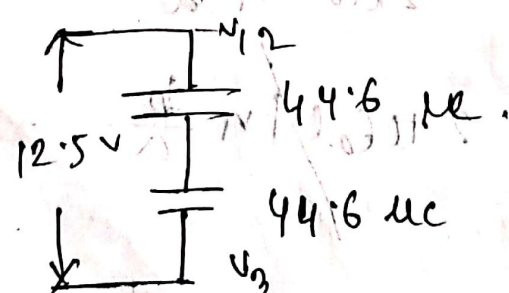 V12
44.6 μC.
12.5 V
44.6 μC
V3